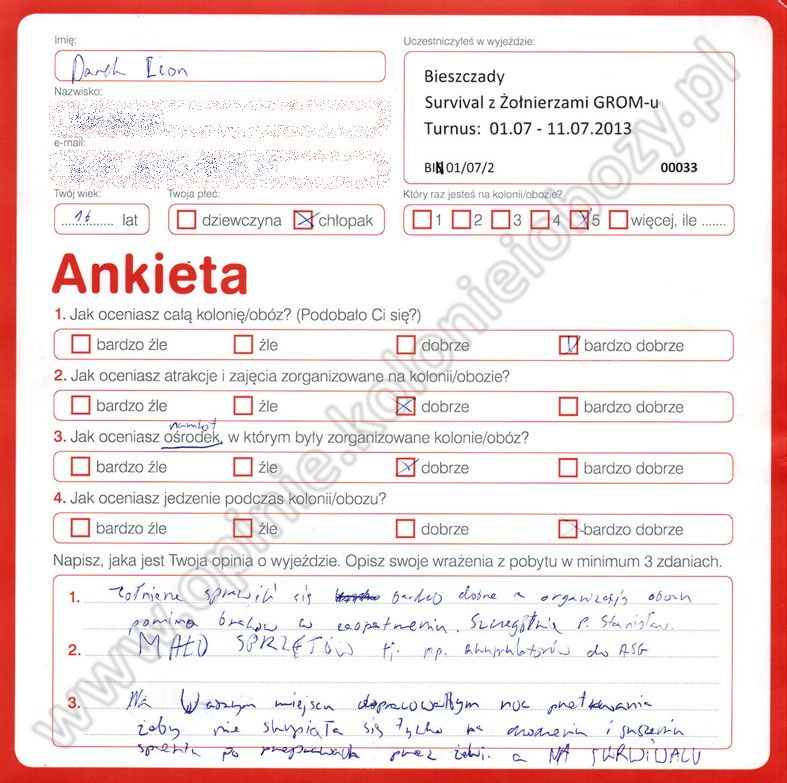 Imię:
Darek Leon
Nazwisko:
e-mail:
Twój wiek:
16 lat
Twoja płeć:
dziewczyna chłopak
Uczestniczyłeś w wyjeździe:
Bieszczady
Survival z Żołnierzami GROM-u
Turnus: 01.07 - 11.07.2013
01/07/2 00033
Który raz jesteś na kolonii/obozie?
1 2 3 4 5 więcej, ile .......
Ankieta
1. Jak oceniasz całą kolonię/obóz? (Podobało Ci się?)
bardzo źle źle dobrze bardzo dobrze
2. Jak oceniasz atrakcje i zajęcia zorganizowane na kolonii/obozie?
bardzo źle źle dobrze bardzo dobrze
namiot
3. Jak oceniasz ośrodek, w którym były zorganizowane kolonie/obóz?
bardzo źle źle dobrze bardzo dobrze
4. Jak oceniasz jedzenie podczas kolonii/obozu?
bardzo źle źle dobrze bardzo dobrze
Napisz, jaka jest Twoja opinia o wyjeździe. Opisz swoje wrażenia z pobytu w minimum 3 zdaniach.
1. żołnierze sprawili się bardzo dobrze z organizacją obozu
pomimo braków w zaopatrzeniu. Szczególnie P. Stanisław.
2. MAŁO SPRZĘTÓW tj. np. akumulatorów do ASG
3. Na Waszym miejscu dopracowałbym noc przetrwania
żeby nie skupiała się tylko na chodzeniu i suszeniu
sprzętu po przeprawach przez a NA SURVIVALU
www.opinie.kolonieiobozy.pl